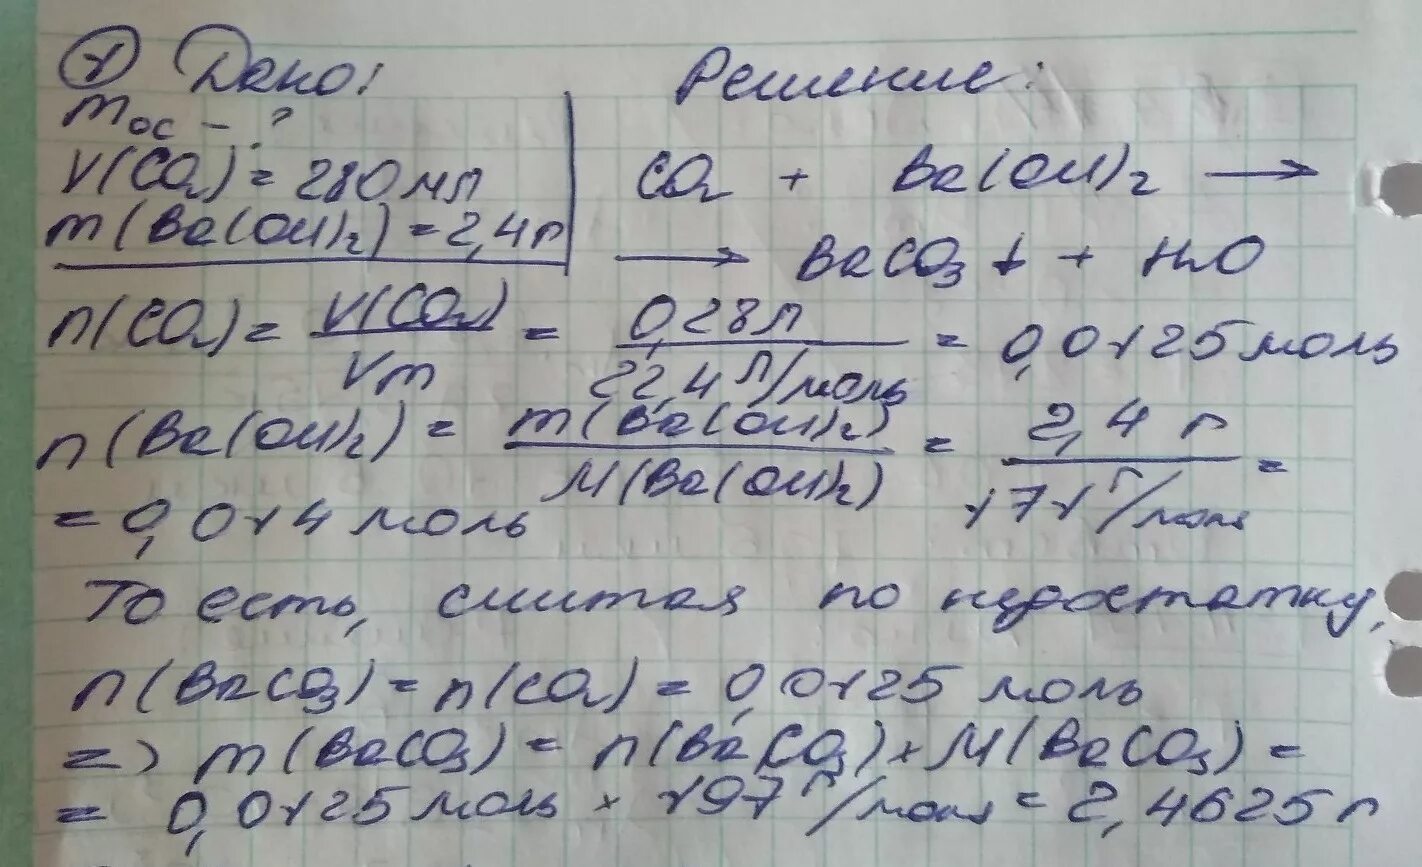 ① Дано: Решение:
mос - ?
V(CO₂) = 280 мл
m(Ba(OH)₂) = 2,4 г
CO₂ + Ba(OH)₂ →
→ BaCO₃ ↓ + H₂O
n(CO₂) = V(CO₂) / Vm = 0,28 л / 22,4 л/моль = 0,0125 моль
n(Ba(OH)₂) = m(Ba(OH)₂) / M(Ba(OH)₂) = 2,4 г / 171 г/моль =
= 0,014 моль
То есть, считая по недостатку,
n(BaCO₃) = n(CO₂) = 0,0125 моль
=> m(BaCO₃) = n(BaCO₃) × M(BaCO₃) =
= 0,0125 моль × 197 г/моль = 2,4625 г